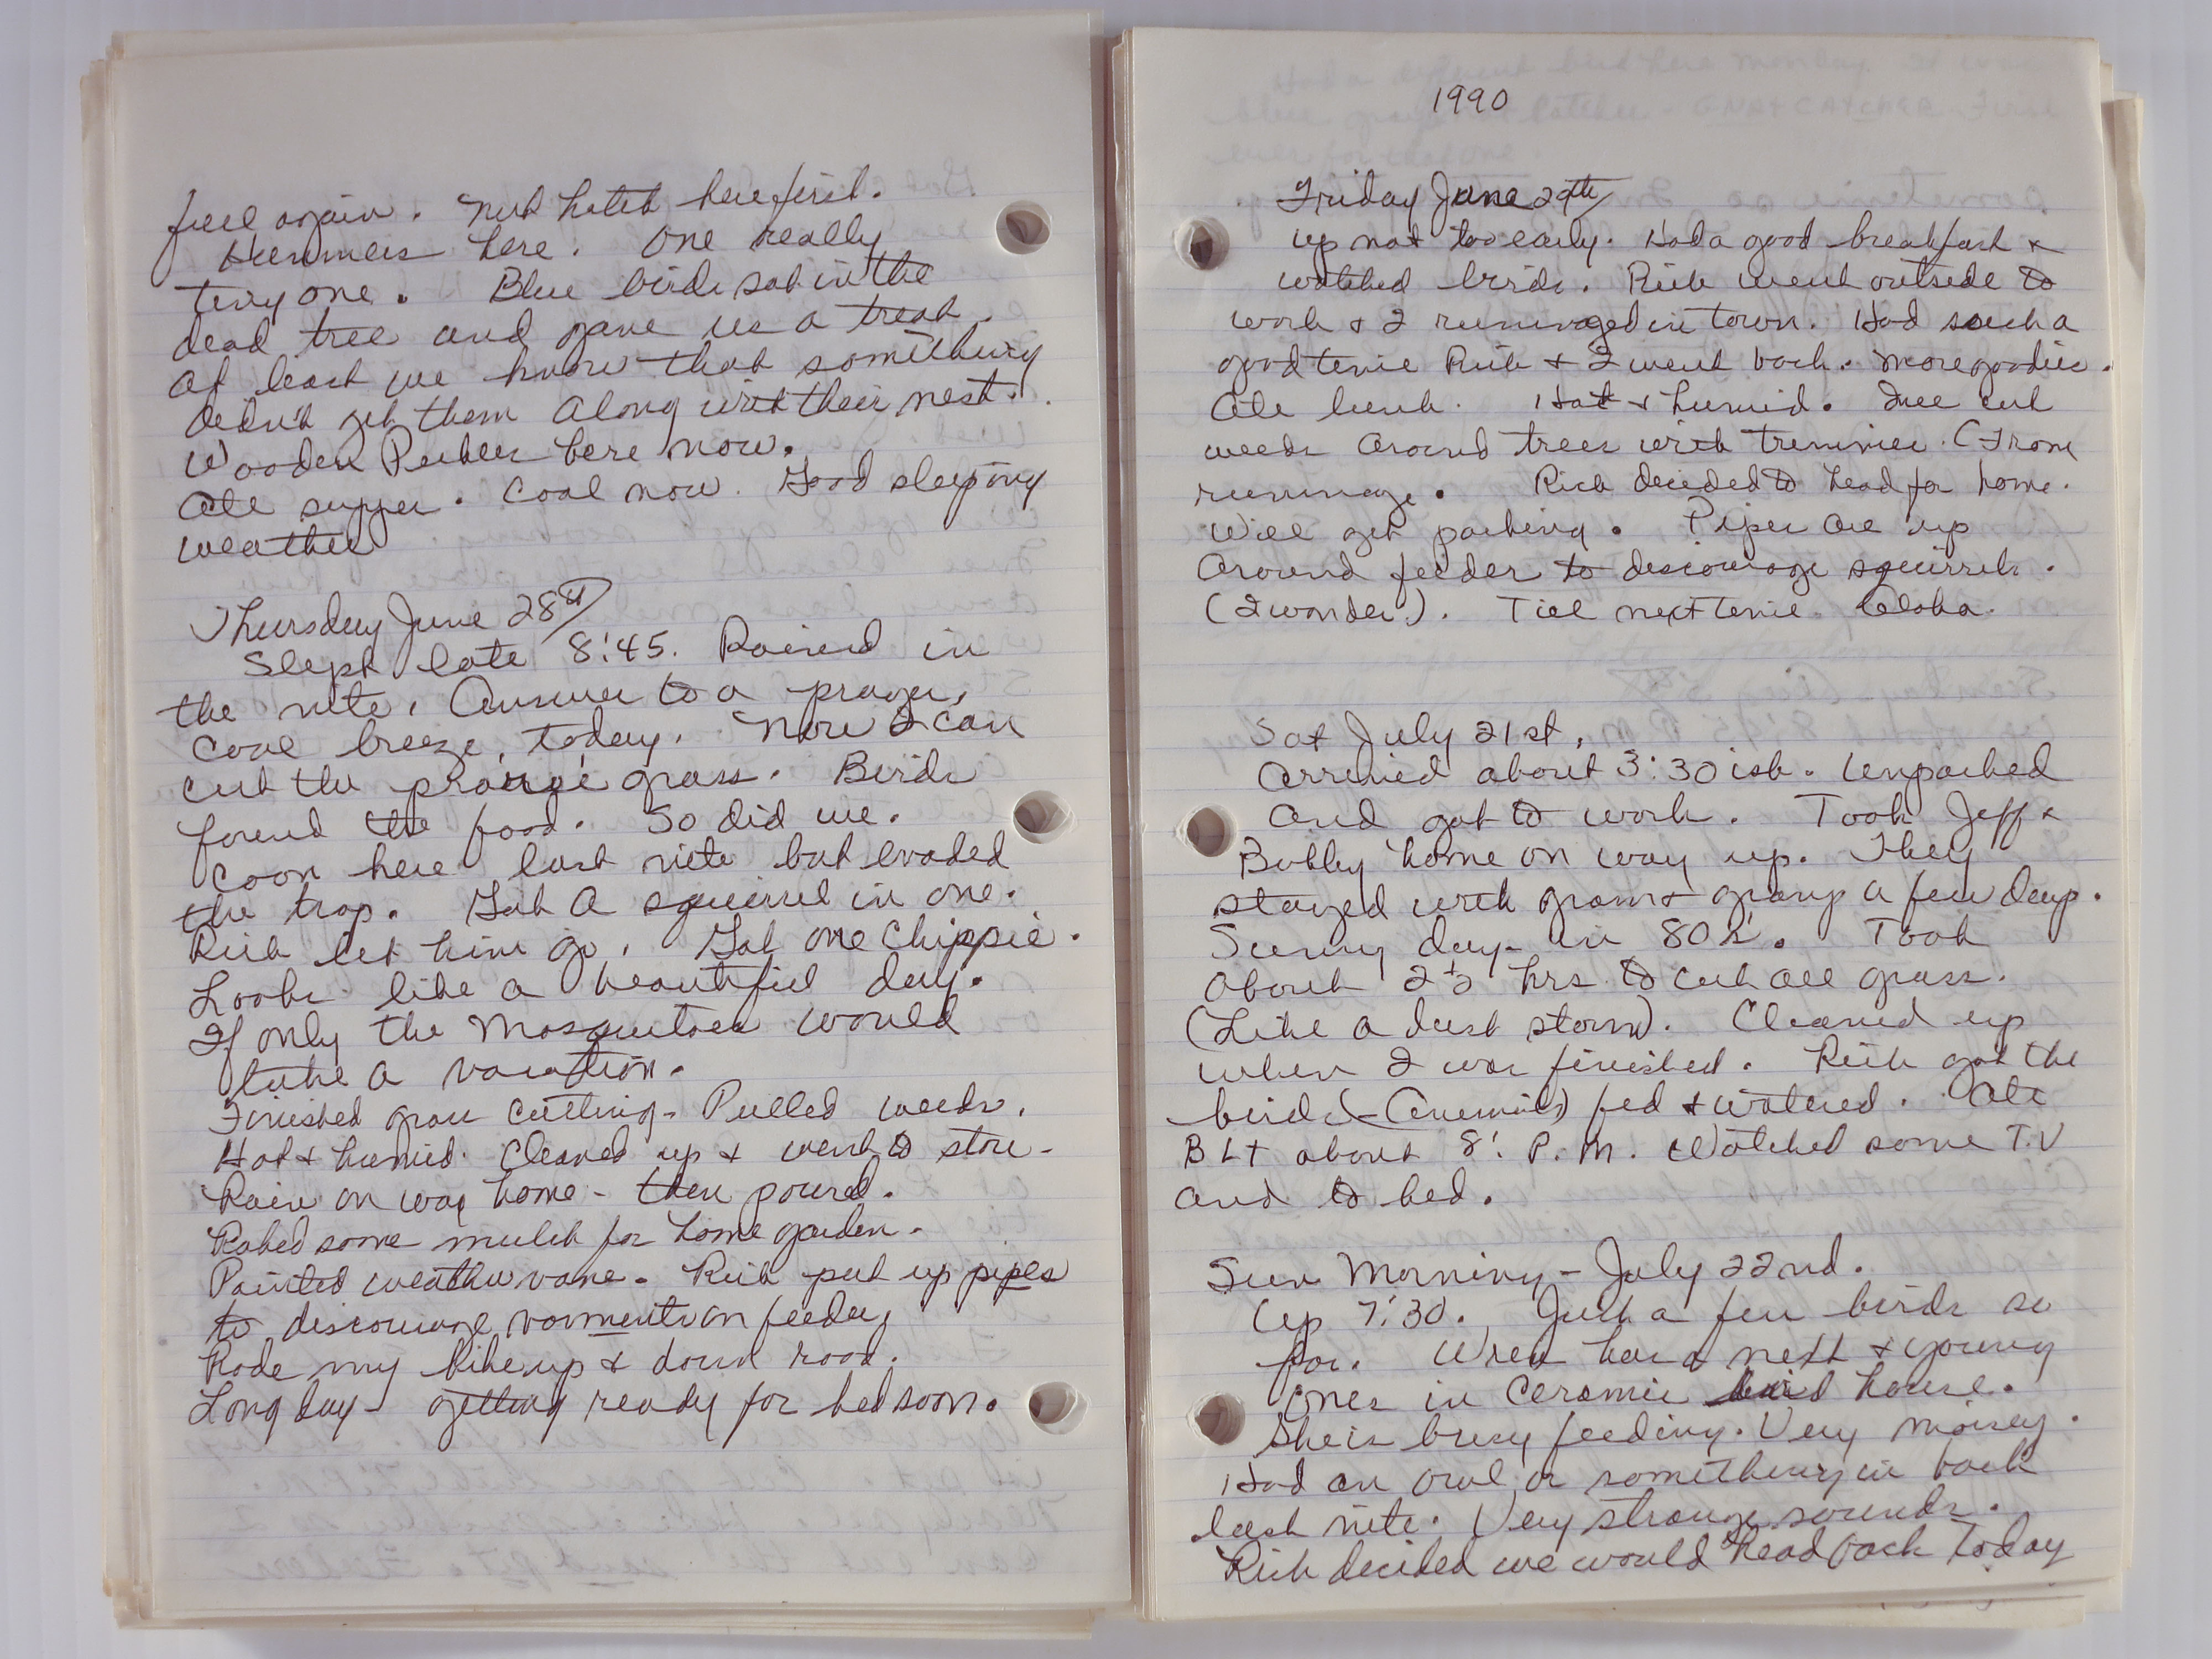 full again. Nut hatch here first.
Hummers here. One really
tiny one. Blue birds sat in the
dead tree and gave us a treat.
At least we know that something
didn't get them along with their nest.
Wooden Pecker here now.
Ate supper. Cool now. Good sleeping
weather
Thursday June 28th
Slept late 8:45. Rained in
the nite. Answer to a prayer.
Cool breeze, today. Now I can
cut the prairie grass. Birds
found the food. So did we.
Coon here last nite but evaded
the trap. Got a squirrel in one.
Rich let him go. Got one Chippie.
Looks like a beautiful day.
If only the Mosquitoes would
take a vacation.
Finished grass cutting - Pulled weeds.
Hot & humid. Cleaned up & went to store -
Rain on way home - then poured.
Raked some mulch for home garden.
Painted weather vane. Rich put up pipes
to discourage varments on feeder.
Rode my bike up & down road.
Long day - getting ready for bed soon.
1990
Friday June 29th
Up not too early. Had a good breakfast &
watched birds. Rich went outside to
work & I rummaged in town. Had such a
good time Rich & I went back. More goodies.
Ate lunch. Hot & humid. Ive cut
weeds around trees with trimmer. (From
rummage. Rich decided to head for home.
Will get packing. Pipes are up
around feeder to discourage squirrels.
(I wonder). Till next time. Aloha.
Sat July 21st.
Arrived about 3:30 ish. Unpacked
and got to work. Took Jeff &
Bobby home on way up. They
stayed with gram & gramp a few days.
Sunny day - in 80's. Took
about 2½ hrs to cut all grass.
(Like a dust storm). Cleaned up
when I was finished. Rich got the
birds (- Animals) fed & watered. Ate
BLT about 8: P.M. Watched some T.V
and to bed.
Sun Morning - July 22nd.
Up 7:30. Just a few birds so
far. Wren has a nest & young
ones in Ceramic bird house.
She is busy feeding. Very noisey.
Had an owl or something in back
last nite. Very strange sounds.
Rich decided we would head back today